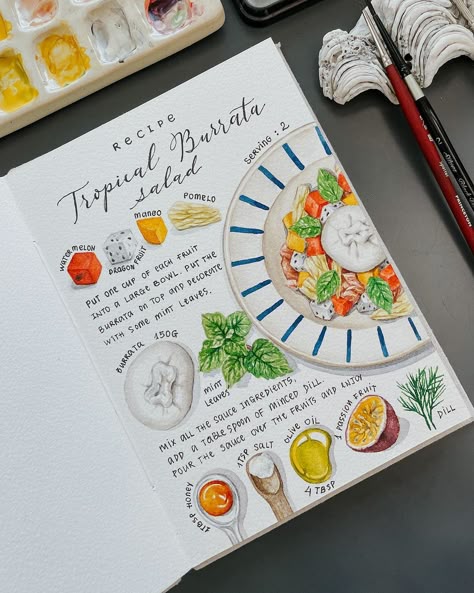 RECIPE
Tropical Burrata
Salad
SERVING : 2
WATERMELON
DRAGON FRUIT
MANGO
POMELO
PUT ONE CUP OF EACH FRUIT
INTO A LARGE BOWL. PUT THE
BURRATA ON TOP AND DECORATE
WITH SOME MINT LEAVES.
BURRATA 150G
MINT
LEAVES
MIX ALL THE SAUCE INGREDIENTS.
ADD A TABLESPOON OF MINCED DILL.
POUR THE SAUCE OVER THE FRUITS AND ENJOY
1TBSP HONEY
1TSP SALT
OLIVE OIL
4 TBSP
1 PASSION FRUIT
DILL